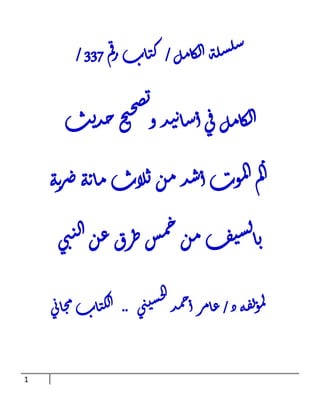 سلسلة الكامل / كتاب رقم 337 /
الكامل في أسانيد و تصحيح حديث
ألم الموت أشد من ثلاث مائة ضربة
بالسيف من خمس طرق عن النبي
لمؤلفه د / عامر أحمد الحسيني .. الكتاب مجاني
1